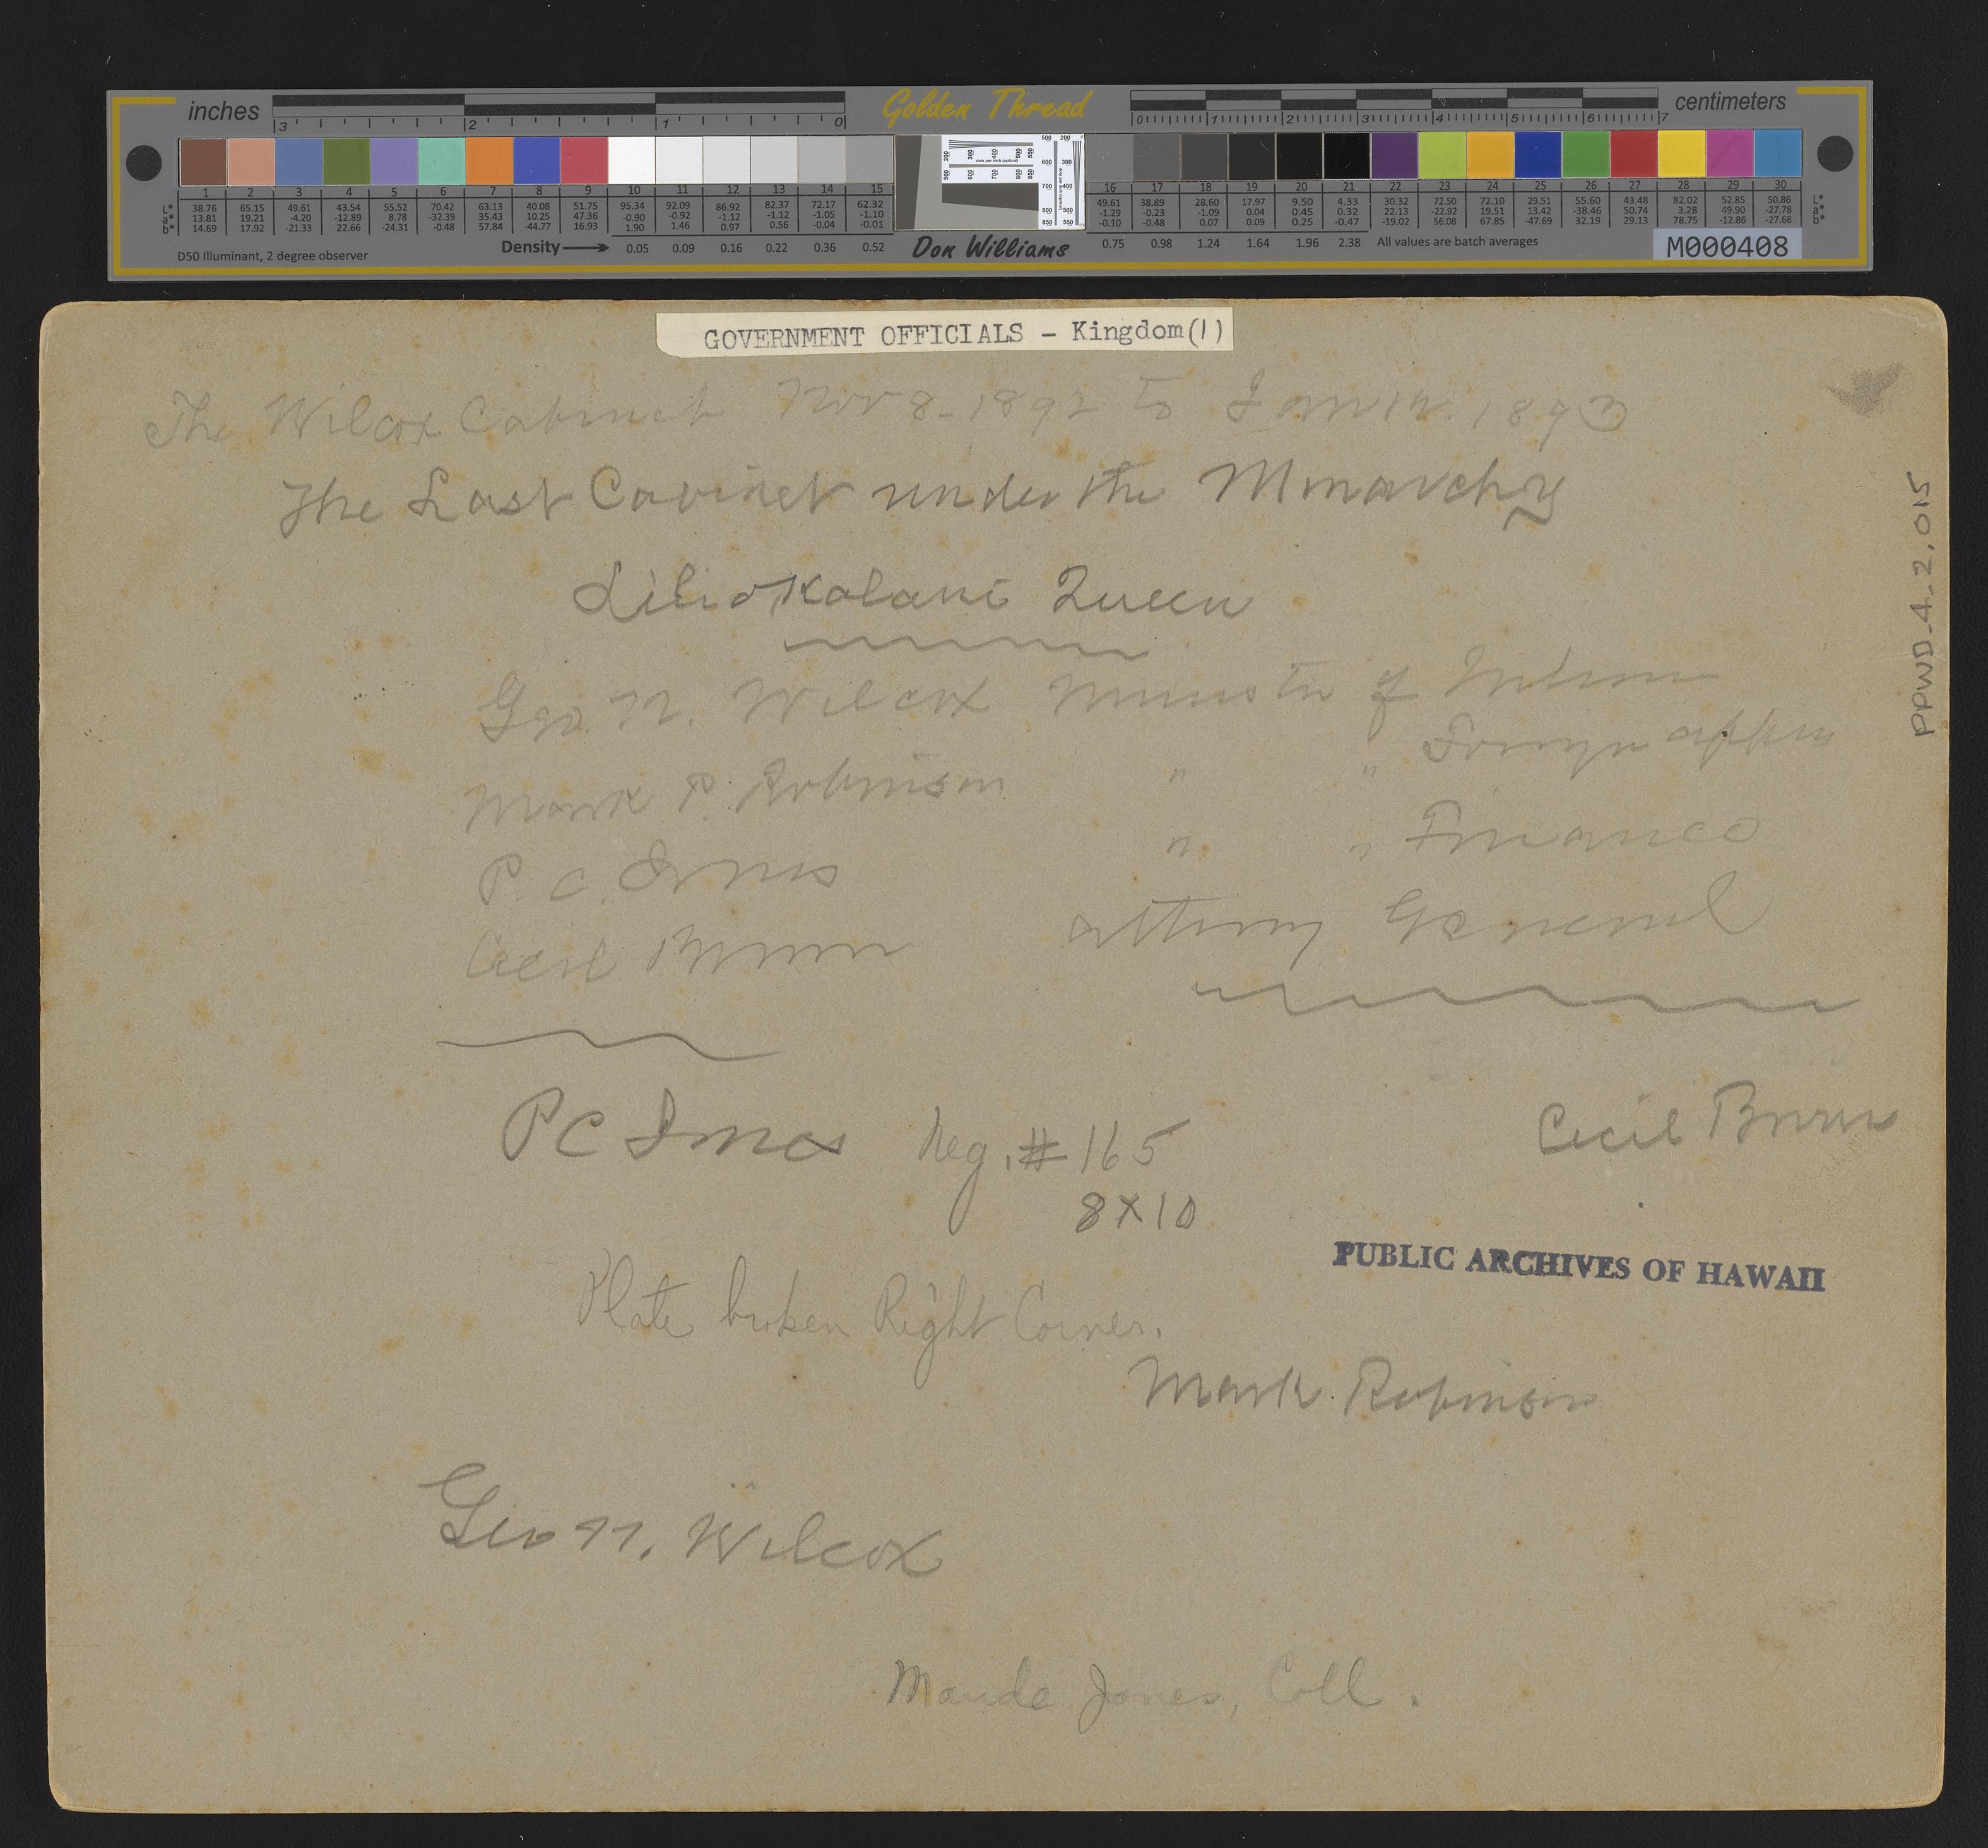 inches Golden Thread centimeters
3 2 1 0 0 1 2 3 4 5 6 7
1 2 3 4 5 6 7 8 9 10 11 12 13 14 15 16 17 18 19 20 21 22 23 24 25 26 27 28 29 30
L* 38.76 65.15 49.61 43.54 55.52 70.42 63.13 40.08 51.75 95.34 92.09 86.92 82.37 72.17 62.32 49.61 38.89 28.60 17.97 9.50 4.33 30.32 72.50 72.10 29.51 55.60 43.48 82.02 52.85 50.86 L*
a* 13.81 19.21 -4.20 -12.89 8.78 -32.39 35.43 10.25 47.36 -0.90 -0.92 -1.12 -1.12 -1.05 -1.10 -1.29 -0.23 -1.09 0.04 0.45 0.32 22.13 -22.92 19.51 13.42 -38.46 50.74 3.28 49.90 -27.78 a*
b* 14.69 17.92 -21.33 22.66 -24.31 -0.48 57.84 -44.77 16.93 1.90 1.46 0.97 0.56 -0.04 -0.01 -0.10 -0.48 0.07 0.09 0.25 -0.47 -19.02 56.08 67.85 -47.69 32.19 29.13 78.75 -12.86 -27.68 b*
D50 Illuminant, 2 degree observer Density 0.05 0.09 0.16 0.22 0.36 0.52 Don Williams 0.75 0.98 1.24 1.64 1.96 2.38 All values are batch averages M000408
GOVERNMENT OFFICIALS - Kingdom(1)
The Wilcox Cabinet Nov 8 - 1892 to Jan 1893
The Last Cabinet under the Monarchy
Liliokalani Queen
Geo. N. Wilcox Minister of Interior
Mark P. Robinson " " Foreign affairs
P. C. Jones " " Finance
Cecil Brown Attorney General
PC Jones Neg. # 165
8X10
Cecil Brown
PUBLIC ARCHIVES OF HAWAII
Plate broken Right Corner.
Mark Robinson
Geo N. Wilcox
Maude Jones, Coll.
PPWD-4-2.015